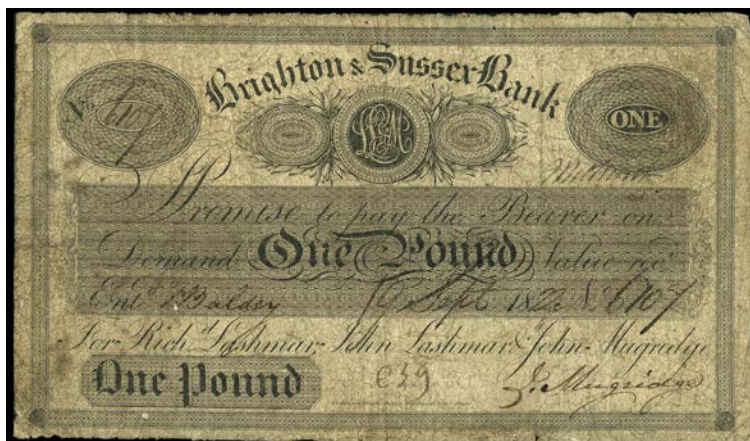 Brighton & Sussex Bank
No. 6107
LLM
ONE
I Promise to pay the Bearer on
Demand One Pound Value recd
Entd Baldey 6 Sept 1823 No 6107
For Richd Lashmar, John Lashmar & John Mugridge
One Pound
C39
J. Mugridge